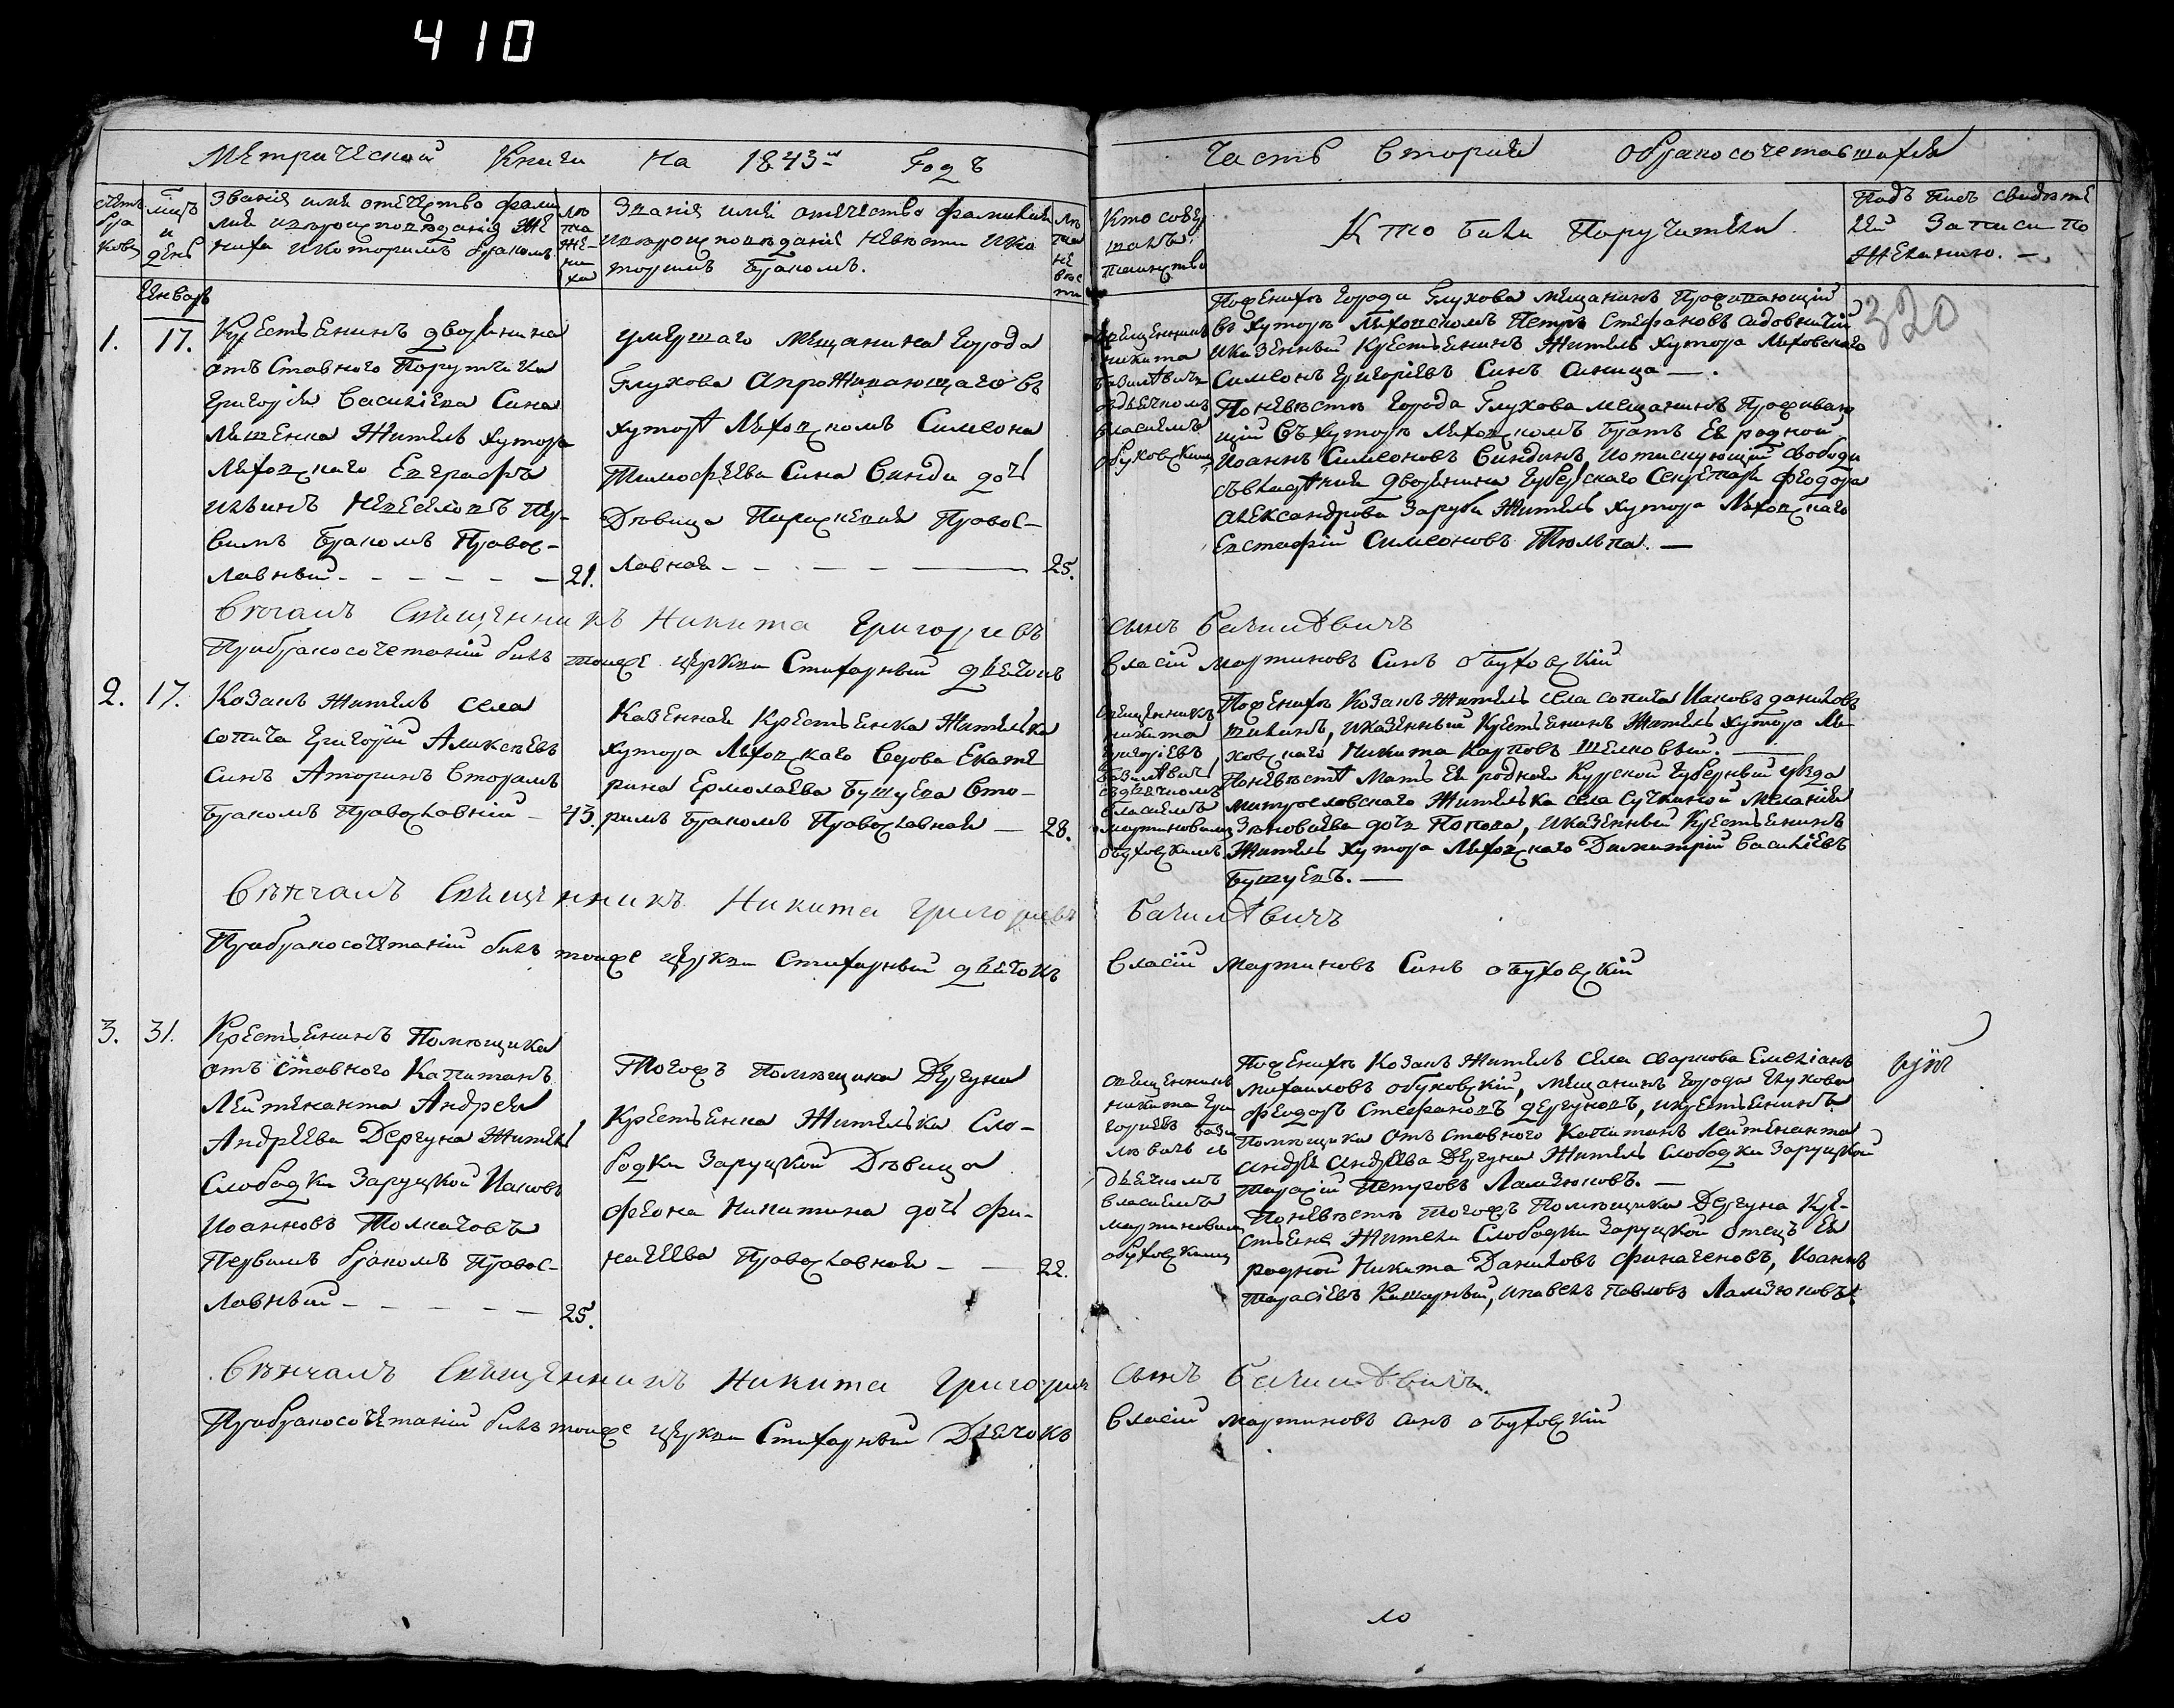 410
Метрической Книги на 1843й Годъ
Часть вторая обракосочетавшихся
счетъ браковъ
мцъ и день
Званіе имя отечество фами
лия ивѣроисповѣданіе же
ниха икоторимъ бракомъ
лѣта жениха
Званіе имя отечество фамилия
ивѣроисповѣданіе невѣсти ико
торимъ бракомъ.
лѣта невѣсти
Кто совер
шалъ
таинство
Кто били Поручители
Подъ писъ свидѣте
лей Записи по
желанию. —
Январь
320
1. 17.
Крестьенинъ дворянина
отъ ставного Порутчика
Григорія Василіева Сина
Ляшенка Житель хутора
Лѣховского Евграфъ
Пер-
вимъ бракомъ Правос-
лавный — 21.
умершаго мещанина города
Глухова Апроживающаго въ
хуторѣ Лѣховскомъ Симеона
Тимофѣева Сина Синди дочь
Дѣвица Параскевия Правос-
лавная — 25.
Священникъ
никита
дьячкомъ
власиемъ
обуховскимъ
Поженихѣ города Глухова мещанинъ Проживающій
въ хуторѣ Лѣховскомъ Петръ Стефановъ садовничій
иказенный Крестьенинъ Житель хутора Лѣховского
Симеонъ Григоріевъ Синъ Синица — .
Поневѣстѣ города Глухова мещанинъ Проживаю
щій въ хуторѣ Лѣховскомъ братъ Ея родной
Иоаннъ Симеоновъ Синдинъ, свободи
дворянина Губерского Секретаря Феодора
Александрова Заруби Житель хутора Лѣховского
Евстафій Симеоновъ Тюльпа. —
Вѣнчалъ Священникъ Никита Григориевъ сынъ Базилѣвичъ
Прибракосочетаній билъ тоиже церкви Стихарный дьячокъ Власій Мартиновъ Синъ обуховскій
2. 17.
Козакъ Житель села
сопича Григорій Аликсѣевъ
Синъ Аторинъ вторимъ
бракомъ Православній — 43.
Казенная Крестьенка Жителька
хутора Лѣховскаго Вдова Екате
рина Ермолаева Бушуева вто-
римъ бракомъ Православная — 28.
Священникъ
никита
григоріевъ
базилѣвичъ
здьячкомъ
власиемъ
мартиновимъ
обуховскимъ
Поженихѣ Козакъ Житель села сопича Иаковъ даниловъ
шилинъ, иказенный Крестьенинъ Житель хутора Лѣ-
ховского Никита Карповъ шелковый. —
Поневѣстѣ Мать Ея родная Курской Губерный уѣзда
митрословского Жителька села сучкиной Меланія
Зѣновіева дочь Попова, иказенный Крестьенинъ
Житель хутора Лѣховскаго Димитрій Василіевъ
Бушуевъ. —
Вѣнчалъ Священникъ Никита Григориевъ Базилѣвичъ
Прибракосочетаній билъ тоиже церкви Стихарный дьячокъ Власій Мартиновъ Синъ обуховскій
3. 31.
Крестьенинъ Помѣщика
отъ ставного Капитанъ
Лейтенанта Андрея
Андрѣева Дергуна Житель
Слободки Заруцкой Иаковъ
Иоанновъ Толмачовъ
Первимъ бракомъ Правос-
лавный — 25.
Тогожъ Помѣщика Дергуна
Крестьенка Жителька Сло-
бодки Заруцкой Дѣвица
Феона Никитина дочь Фи-
начеева Православная — 22.
Священникъ
никита Гри
гориевъ бази
лѣвичъ съ
дьячкомъ
власиемъ
мартиновимъ
обуховскимъ
Поженихѣ Козакъ Житель села сваркова Емелианъ
михаиловъ обуховскій, мещанинъ города Глухова
феодоръ Стефановъ дергуновъ, икрестьенинъ
Помѣщика отъ ставного Капитанъ Лейтенанта
Андрея Андрѣева Дергуна Житель Слободки Заруцкой
Тарасій Петровъ Ламзюковъ. —
Поневѣстѣ Тогожъ Помѣщика Дергуна Кре-
стьене Жители Слободки Заруцкой отецъ Ея
родной Никита Даниловъ Финагеновъ, Иоаннъ
Тарасіевъ Кашарный, ипавелъ Павловъ Ламзюковъ.
Вѣнчалъ Священникъ Никита Григориевъ сынъ Базилѣвичъ.
Прибракосочетаній билъ тоиже церкви Стихарный Дьячокъ Власій Мартиновъ синъ обуховскій